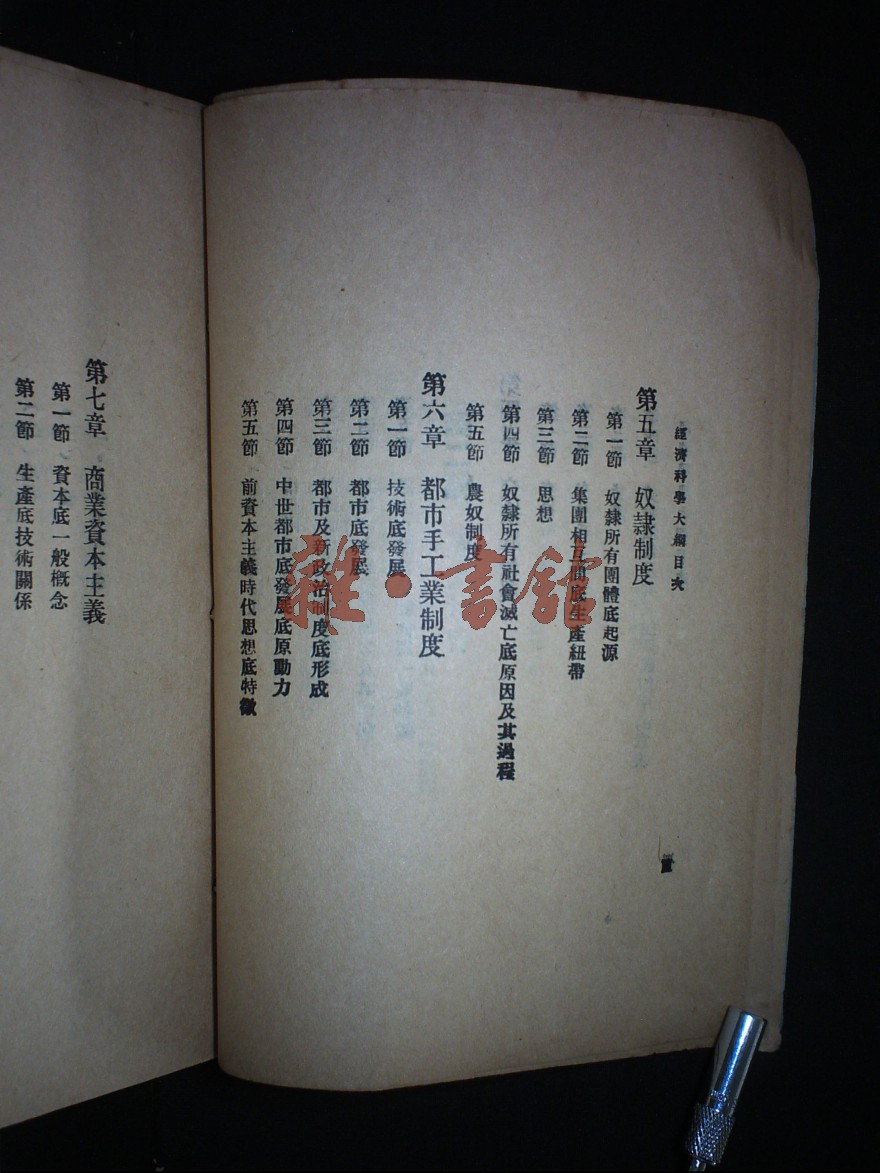 經濟科學大綱目次
第五章 奴隸制度
第一節 奴隸所有團體底起源
第二節 集團相互間底生產紐帶
第三節 思想
第四節 奴隸所有社會滅亡底原因及其過程
第五節 農奴制度
第六章 都市手工業制度
第一節 技術底發展
第二節 都市底發展
第三節 都市及新政治制度底形成
第四節 中世都市底發展底原動力
第五節 前資本主義時代思想底特徵
第七章 商業資本主義
第一節 資本底一般概念
第二節 生產底技術關係
雜·書館